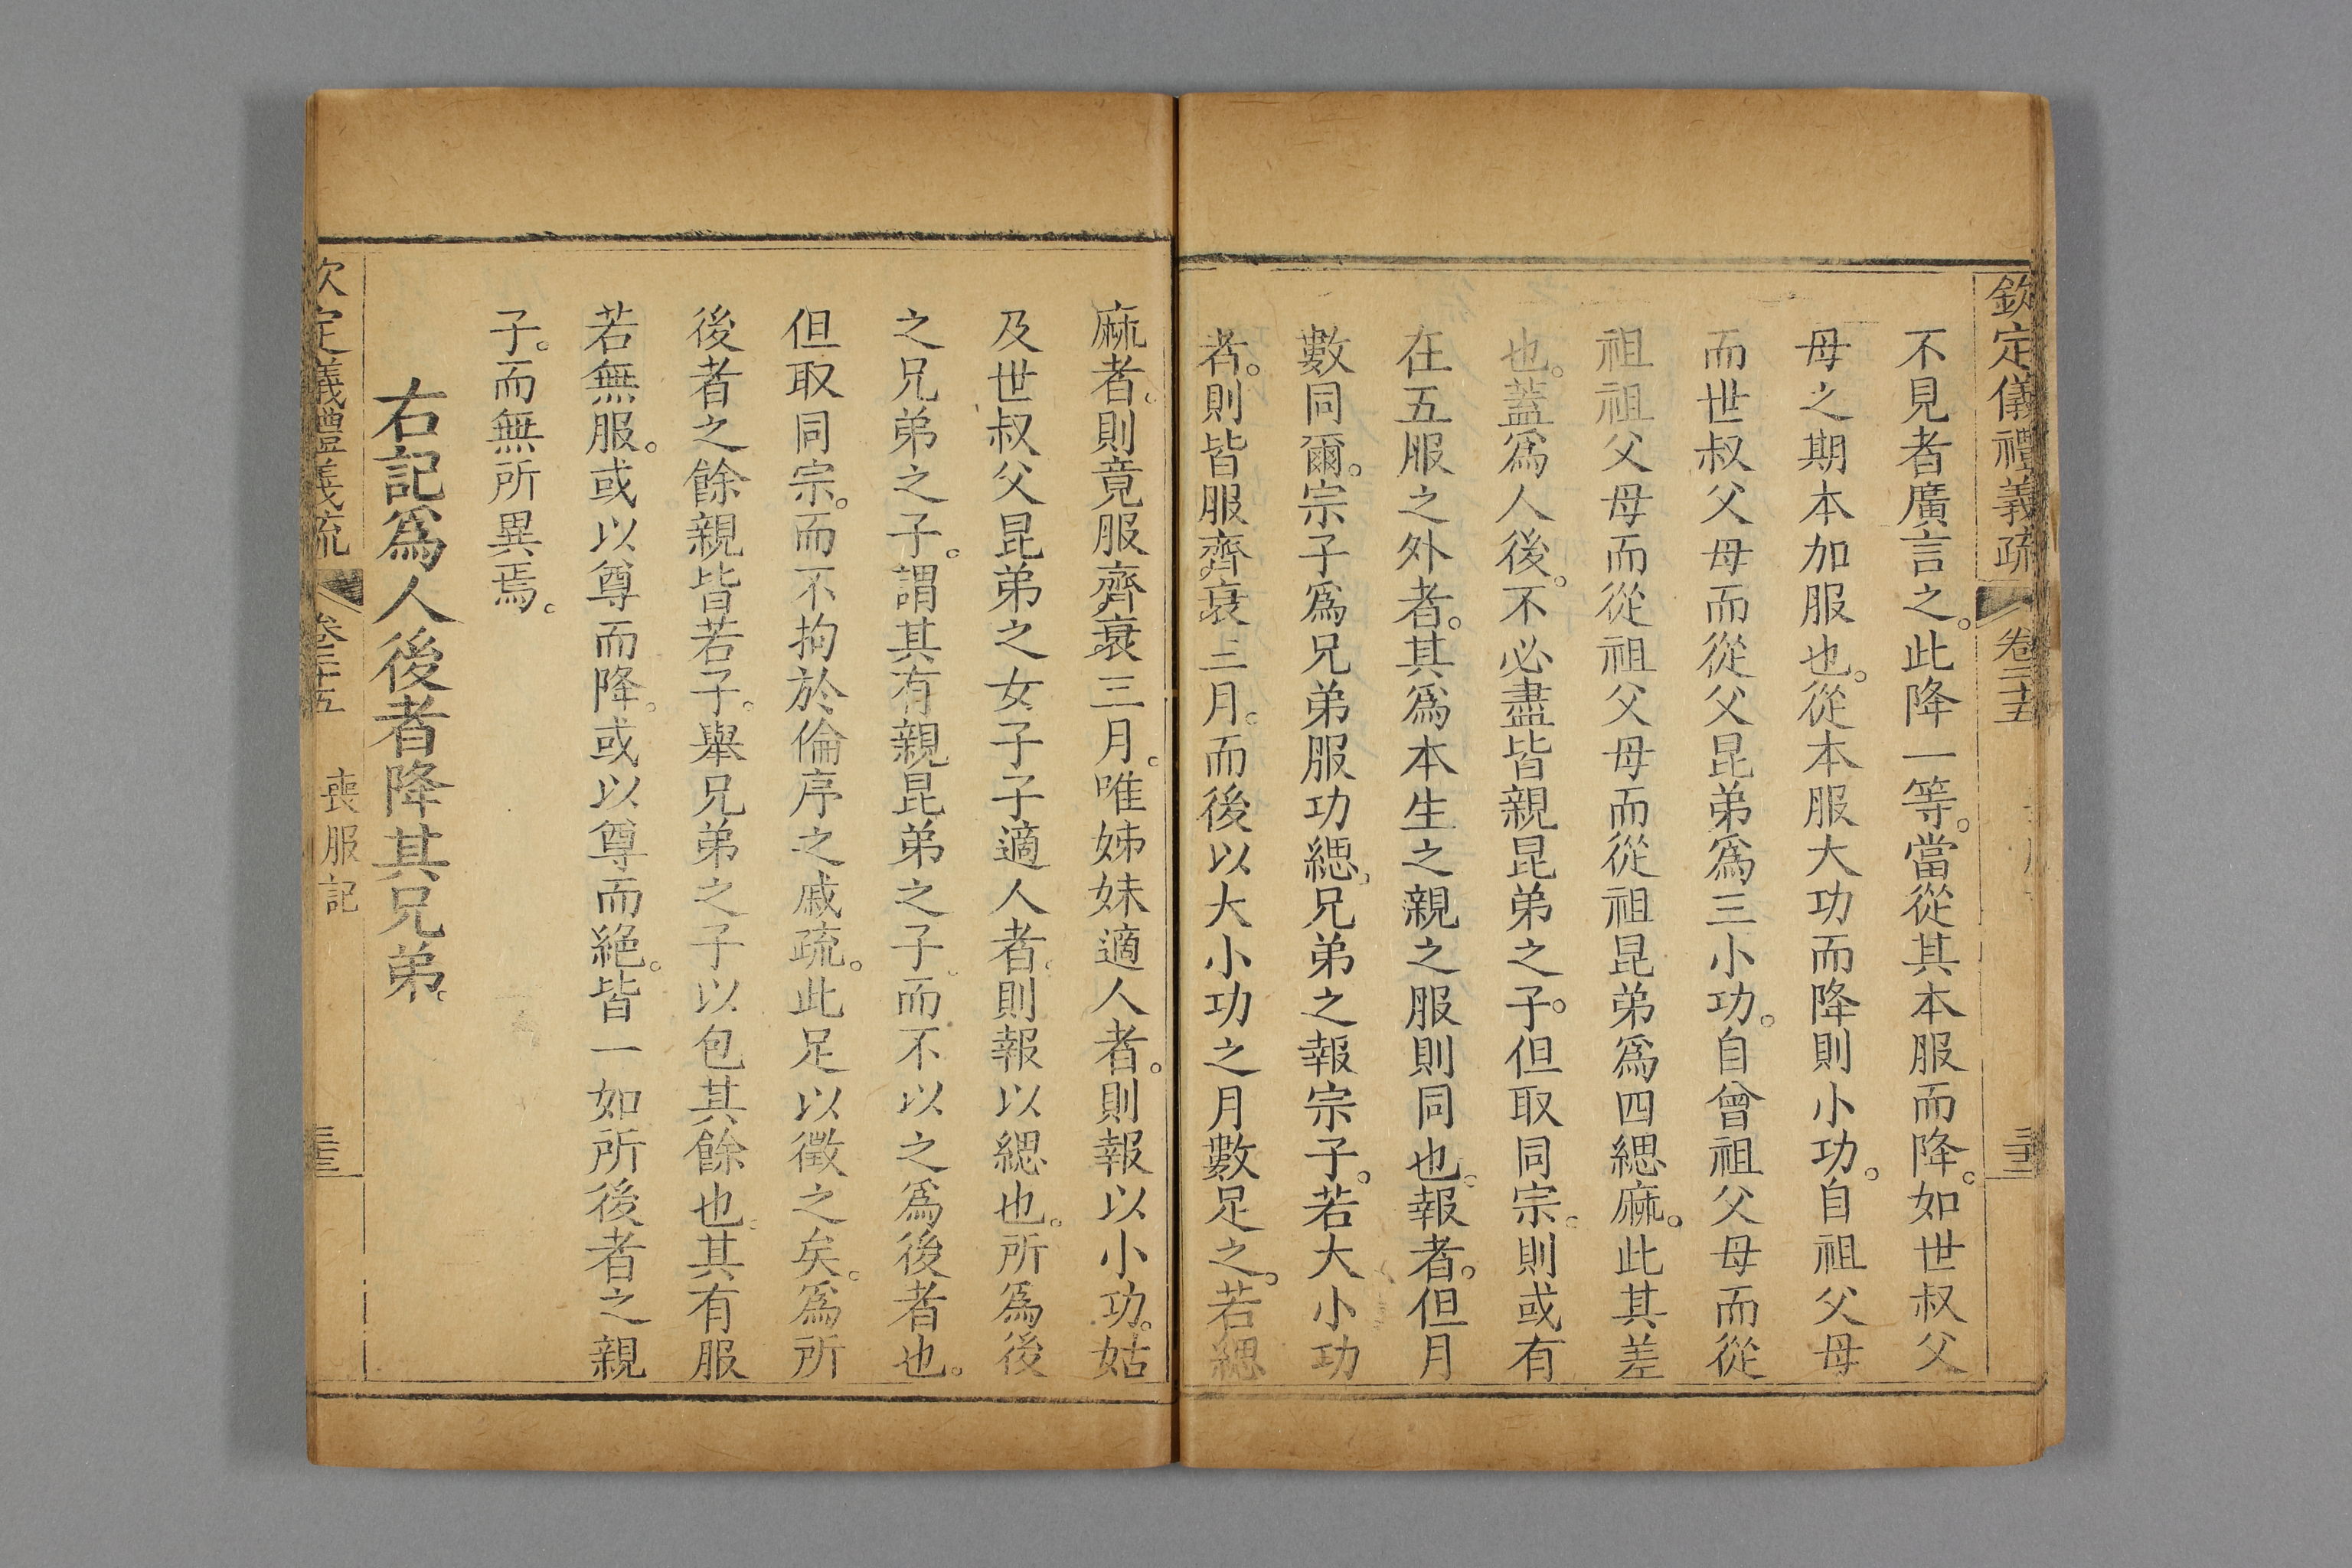 欽定儀禮義疏 卷二十五
不見者廣言之。此降一等。當從其本服而降。如世叔父
母之期本加服也。從本服大功而降則小功。自祖父母
而世叔父母而從父昆弟爲三小功。自曾祖父母而從
祖祖父母而從祖父母而從祖昆弟爲四緦麻。此其差
也。蓋爲人後。不必盡皆親昆弟之子。但取同宗。則或有
在五服之外者。其爲本生之親之服則同也。報者。但月
數同爾。宗子爲兄弟服功緦。兄弟之報宗子。若大小功
者。則皆服齊衰三月。而後以大小功之月數足之。若緦
麻者。則竟服齊衰三月。唯姊妹適人者。則報以小功。姑
及世叔父昆弟之女子子適人者。則報以緦也。所爲後
之兄弟之子。謂其有親昆弟之子。而不以之爲後者也。
但取同宗。而不拘於倫序之戚疏。此足以徵之矣。爲所
後者之餘親皆若子。舉兄弟之子以包其餘也。其有服
若無服。或以尊而降。或以尊而絕。皆一如所後者之親
子。而無所異焉。
右記爲人後者降其兄弟。
欽定儀禮義疏 卷二十五 喪服記